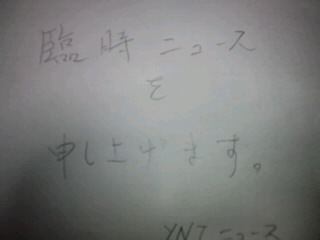 臨時ニュース
を
申し上げます。
YNTニュース